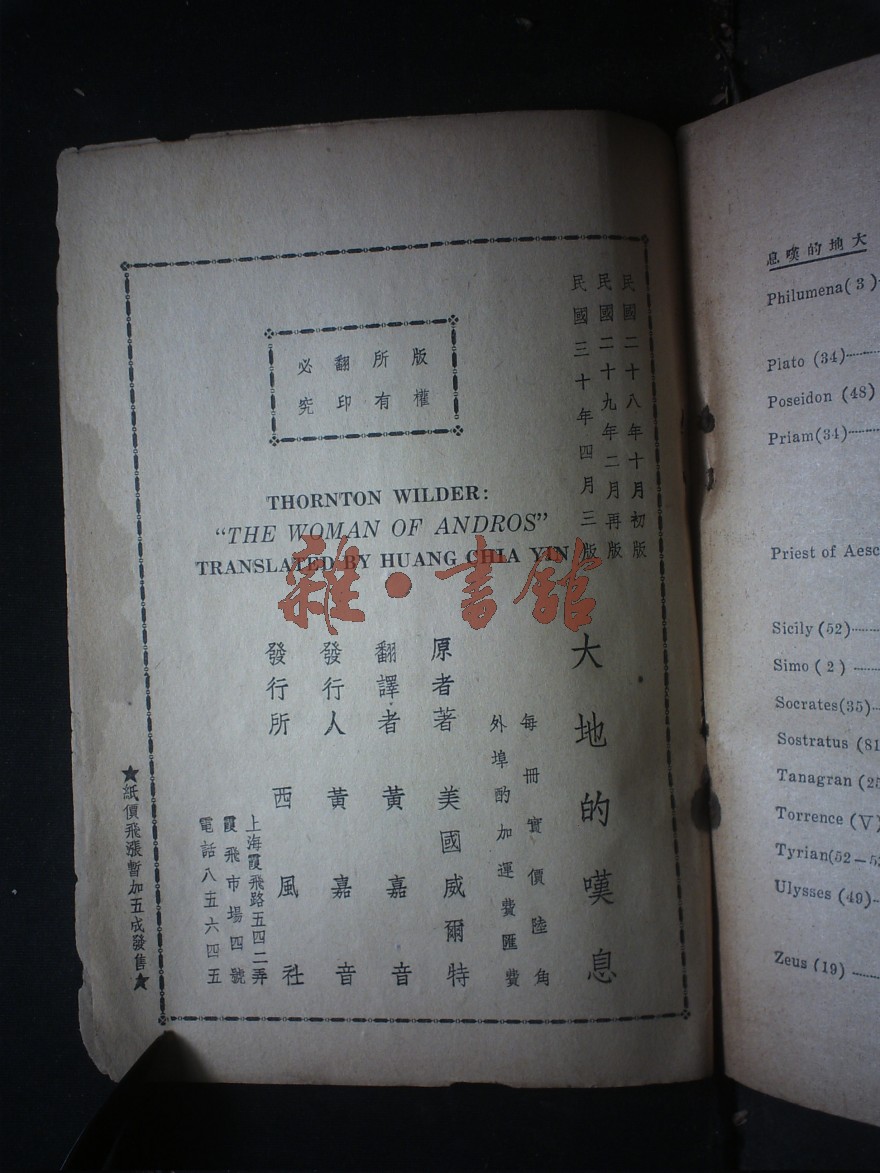 民國二十八年十月初版
民國二十九年二月再版
民國三十年四月三版
版權
所有
翻印
必究
THORNTON WILDER:
“THE WOMAN OF ANDROS”
TRANSLATED BY HUANG CHIA YIN
雜·書館
大地的嘆息
每冊實價陸角
外埠酌加運費匯費
原著者 美國威爾特
翻譯者 黃嘉音
發行人 黃嘉音
發行所 西風社
上海霞飛路五四二弄
霞飛市場四號
電話八五六四五
★紙價飛漲暫加五成發售★
大地的嘆息
Philumena(3)
Plato (34)
Poseidon (48)
Priam(34)
Priest of Aesc
Sicily (52)
Simo (2)
Socrates(35)
Sostratus (81
Tanagran (25
Torrence (V)
Tyrian(52—52
Ulysses (49)
Zeus (19)